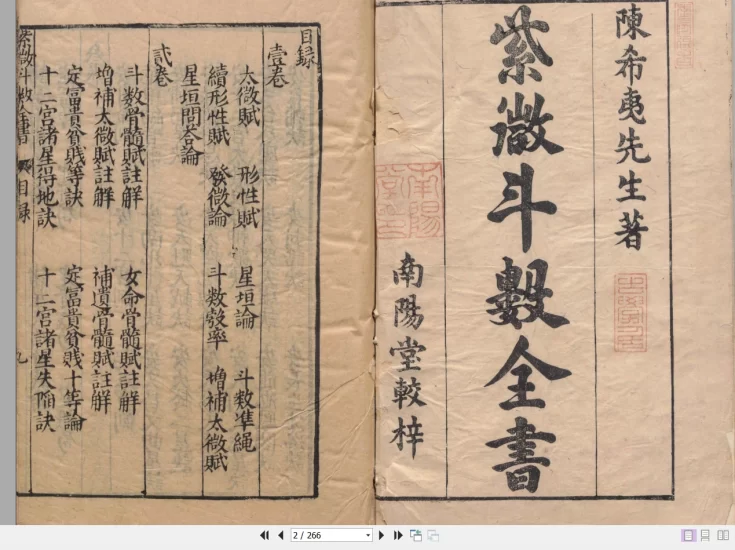 陳希夷先生著
紫微斗數全書
南陽堂較梓
南陽
目録
壹卷
太微賦 形性賦 星垣論 斗數準繩
續形性賦 發微論 斗數彀率 増補太微賦
星垣問荅論
貳卷
斗數骨髓賦註解 女命骨髓賦註解
増補太微賦註解 補遺骨髓賦註解
定富貴貧賤等訣 定富貴貧賤十等論
十二宫諸星得地訣 十二宫諸星失陥訣
紫微斗數全書 目録 九
2 / 266